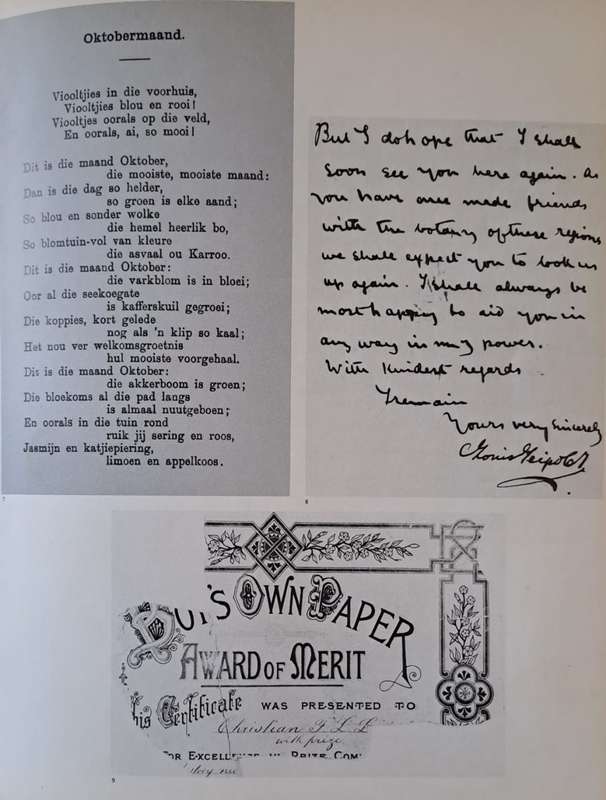 Oktobermaand.
Viooltjies in die voorhuis,
Viooltjies blou en rooi!
Viooltjes oorals op die veld,
En oorals, ai, so mooi!
Dit is die maand Oktober,
die mooiste, mooiste maand:
Dan is die dag so helder,
so groen is elke aand;
So blou en sonder wolke
die hemel heerlik bo,
So blomtuin-vol van kleure
die asvaal ou Karroo.
Dit is die maand Oktober:
die varkblom is in bloei;
Oor al die seekoegate
is kafferskuil gegroei;
Die koppies, kort gelede
nog als 'n klip so kaal;
Het nou ver welkomsgroetnis
hul mooiste voorgehaal.
Dit is die maand Oktober:
die akkerboom is groen;
Die bloekoms al die pad langs
is almaal nuutgeboen;
En oorals in die tuin rond
ruik jij sering en roos,
Jasmijn en katjiepiering,
limoen en appelkoos.
7
But I do hope that I shall
soon see you here again. As
you have once made friends
with the botany of these regions
we shall expect you to look us
up again. I shall always be
most happy to aid you in
any way in my power.
With kindest regards
I remain
Yours very sincerely
Louis Leipoldt.
8
Boy's Own Paper
Award of Merit
This Certificate was presented to
Christian F. L. L.
with prize
For Excellence in Prize Com
July
9